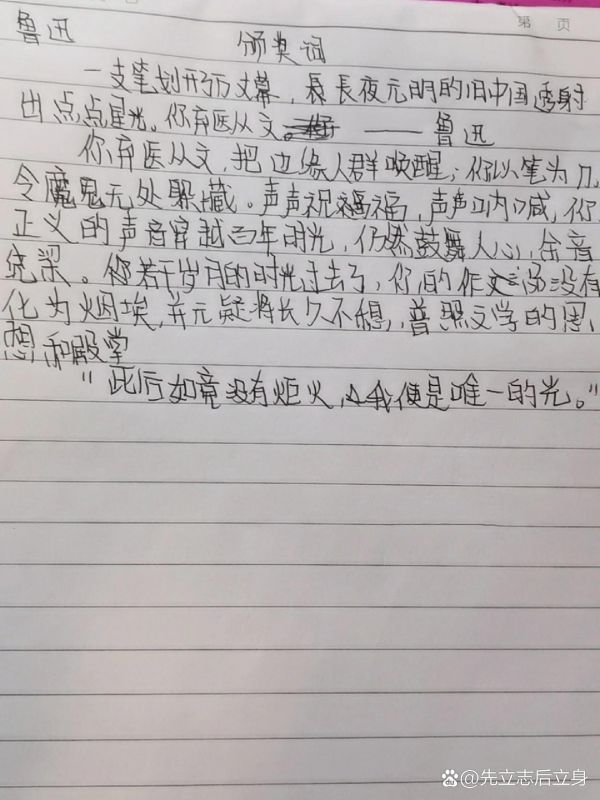 第 页
鲁迅
颁奖词
一支笔划开了万丈幕，长夜无明的旧中国透射
出点点星光。你弃医从文。 —— 鲁迅
你弃医从文，把边缘人群唤醒；你以笔为刀，
令魔鬼无处躲藏。声声祝福，声声呐喊，你
正义的声音穿越百年时光，仍然鼓舞人心，余音
绕梁。你若干岁月的时光过去了，你的作文没有
化为烟埃，并无疑将长久不息，普照文学的思
想和殿堂
"此后如竟没有炬火，我便是唯一的光。"
@先立志后立身